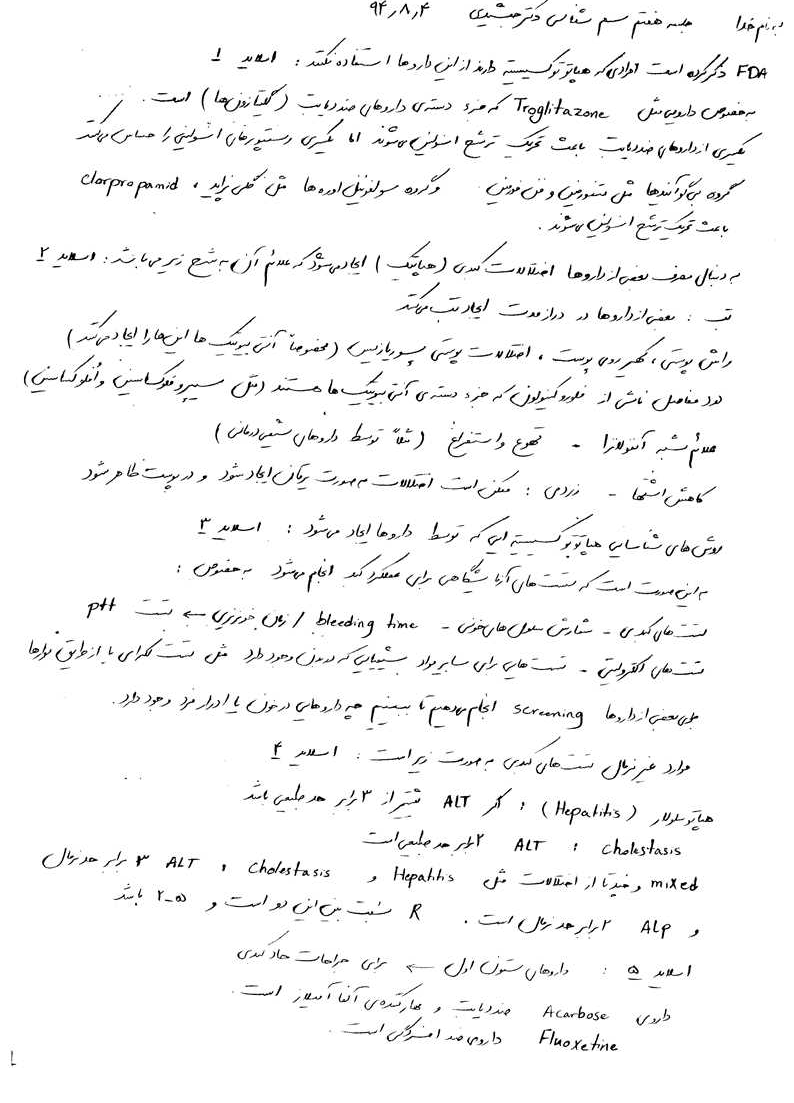 بنام خدا جلسه هفتم سم شناسی دکتر جمشیدی ۹۴٫۸٫۴
FDA ذکر کرده است افرادی که هپاتوتوکسیسیته دارند از این داروها استفاده نکنند : اسلاید ۱
به خصوص دارویی مثل Troglitazone که جزء دسته ی داروهای ضد دیابت (گلیتازون ها) است.
یکسری از داروهای ضد دیابت باعث تحریک ترشح انسولین می شوند اما یکسری رسپتورهای انسولینی را حساس می کند
گروه بی گوآنیدها مثل متفورمین و فن فورمین و گروه سولفونیل اوره ها مثل گلی زاید ، clorpropamid
باعث تحریک ترشح انسولین می شوند .
به دنبال مصرف بعضی از داروها اختلالات کبدی (هپاتیک) ایجاد می شود که علائم آن به شرح زیر می باشد : اسلاید ۲
تب : بعضی از داروها در دراز مدت ایجاد تب می کند
راش پوستی ، کهیر روی پوست ، اختلالات پوستی پسوریازیس (مخصوصاً آنتی بیوتیک ها این ها را ایجاد می کند)
درد مفاصل ناشی از فلوروکینولون که جزء دسته ی آنتی بیوتیک ها هستند (مثل سیپروفلوکساسین و افلوکساسین)
علائم شبه آنفولانزا - تهوع و استفراغ (مثلاً توسط داروهای شیمی درمانی)
کاهش اشتها - زردی : ممکن است اختلالات به صورت یرقان ایجاد شود و در پوست ظاهر شود
روش های شناسایی هپاتوتوکسیسیته ایی که توسط داروها ایجاد می شود : اسلاید ۳
به این صورت است که تست های آزمایشگاهی برای عملکرد کبد انجام می شود به خصوص :
تست های کبدی - شمارش سلول های خونی - bleeding time / زمان خونریزی ← تست ptt
تست های الکترولیتی - تست هایی برای سایر مواد شیمیایی که در بدن وجود دارد مثل تست گذرای یا از طریق نوارها
برای بعضی از داروها screening انجام می دهیم تا ببینیم چه داروهایی در خون یا ادرار فرد وجود دارد .
موارد غیر نرمال تست های کبدی به صورت زیر است : اسلاید ۴
هپاتوسلولار (Hepatitis) : اگر ALT بیشتر از ۳ برابر حد طبیعی باشد
Cholestasis : ALT ۲ برابر حد طبیعی است
mixed و چند تا از اختلالات مثل Hepatitis و Cholestasis : ALT ۳ برابر حد نرمال
و ALP ۲ برابر حد نرمال است . R نسبت بین این دو است و ۵-۲ باشد
اسلاید ۵ : داروهای ستون اول ← برای جراحات حاد کبدی
داروی Acarbose ضد دیابت و مهارکننده ی آلفا آمیلاز است .
Fluoxetine داروی ضد افسردگی است .
1